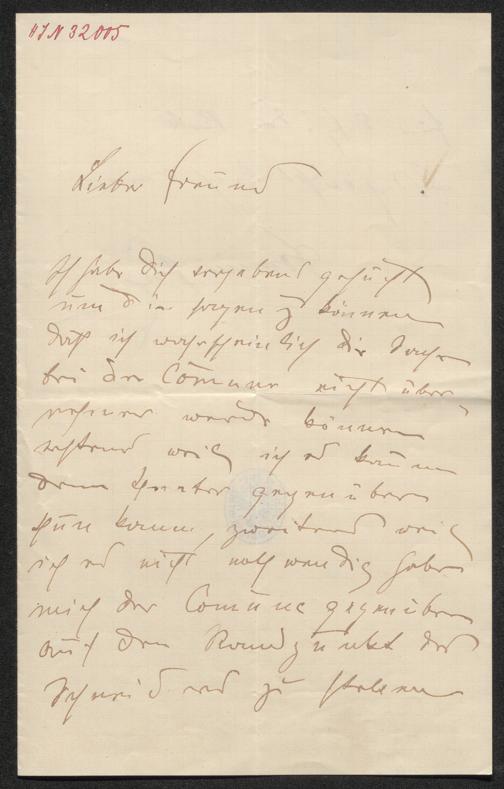 HIN 32005
Lieber Freund
Ich habe dich vergebens gesucht
um dir sagen z können
daß ich wahrscheinlich die Sache
bei der Comune nicht über
nehmen werde können
erstens weil ich es kaum
dem Theater gegenüber
thun kann, zweitens weil
ich es nicht nothwendig habe
mich der Comune gegenüber
auf den
Schneiders zu stellen